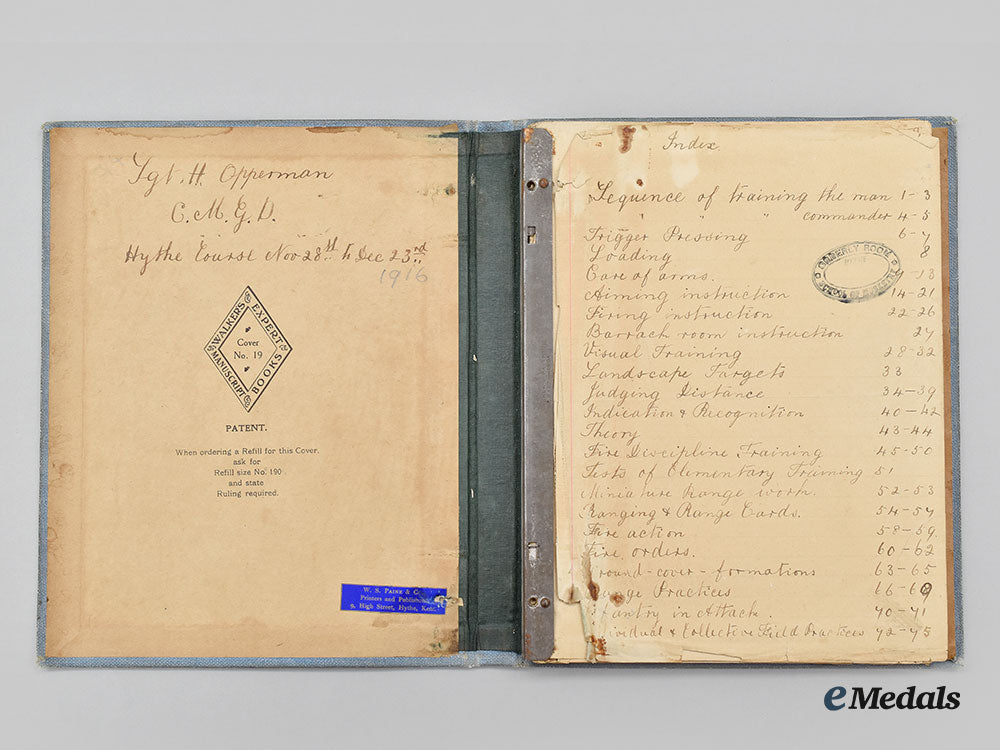 Sgt. H. Opperman
C.M.G.D.
Hythe Course Nov 28th to Dec 23rd
1916
WALKERS EXPERT
MANUSCRIPT BOOKS
Cover
No. 19
PATENT.
When ordering a Refill for this Cover,
ask for
Refill size No. 190
and state
Ruling required.
W. S. PAINE & Co.
Printers and Publishers
9, High Street, Hythe, Kent.
Index
Sequence of training the man 1-3
" " " commander 4-5
Trigger Pressing 6-7
Loading 8
Care of arms. 9-13
Aiming instruction 14-21
Firing instruction 22-26
Barrack room instruction 27
Visual Training 28-32
Landscape Targets 33
Judging Distance 34-39
Indication & Recognition 40-42
Theory 43-44
Fire Discipline Training 45-50
Tests of Elementary Training 51
Miniature Range work. 52-53
Ranging & Range Cards. 54-57
Fire action 58-59.
Fire orders. 60-62
round-cover-formations 63-65
Range Practices 66-69
fantry in Attack 70-71
dividual & Collective Field Practices 72-75
ORDERLY ROOM
SCHOOL OF MUSKETRY
eMedals